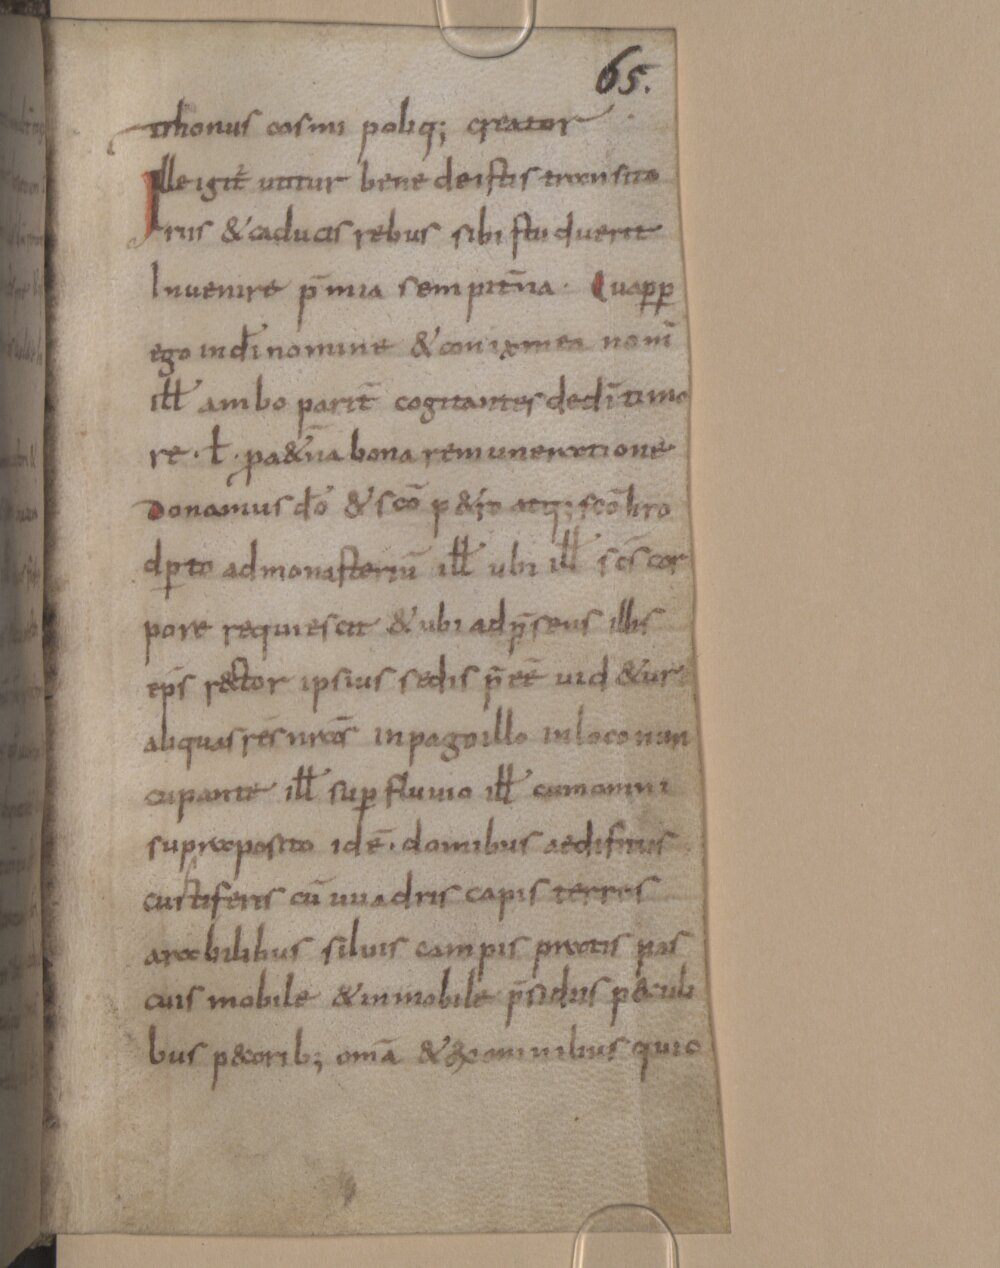 65.
ithonus cosmi poliq; creator
Ille igit̄ utitur bene de istis transito
riis & caducis rebus sibi studuerit
Invenire p̄mia sempit̄na · Quapp̱
ego in dī nomine & coniux mea nom̄
ill̄ ambo parit̄ cogitantes de dī timo
re · ł · p&̄na bona remuneratione
Donamus dō & scō p&ro atq; scō hro
dp̱to ad monasteriū ill̄ ubi ill̄ scs̄ cor
pore requiescit & ubi ad p̄sens illis
ep̄s rector ipsius sedis p̄eē uid&ur
aliquas rēs nrās̄ in pago illo in loco nun
cupante ill̄ sup̱ fluuio ill̄ cum omni
supraposito idē · domibus aedificiis
curtiferis cū uuadris capis terris
arabilibus siluis campis pratis pas
cuis mobile & inmobile p̄sidiis p&culi
bus p&corib; omā & ex omnibus quic